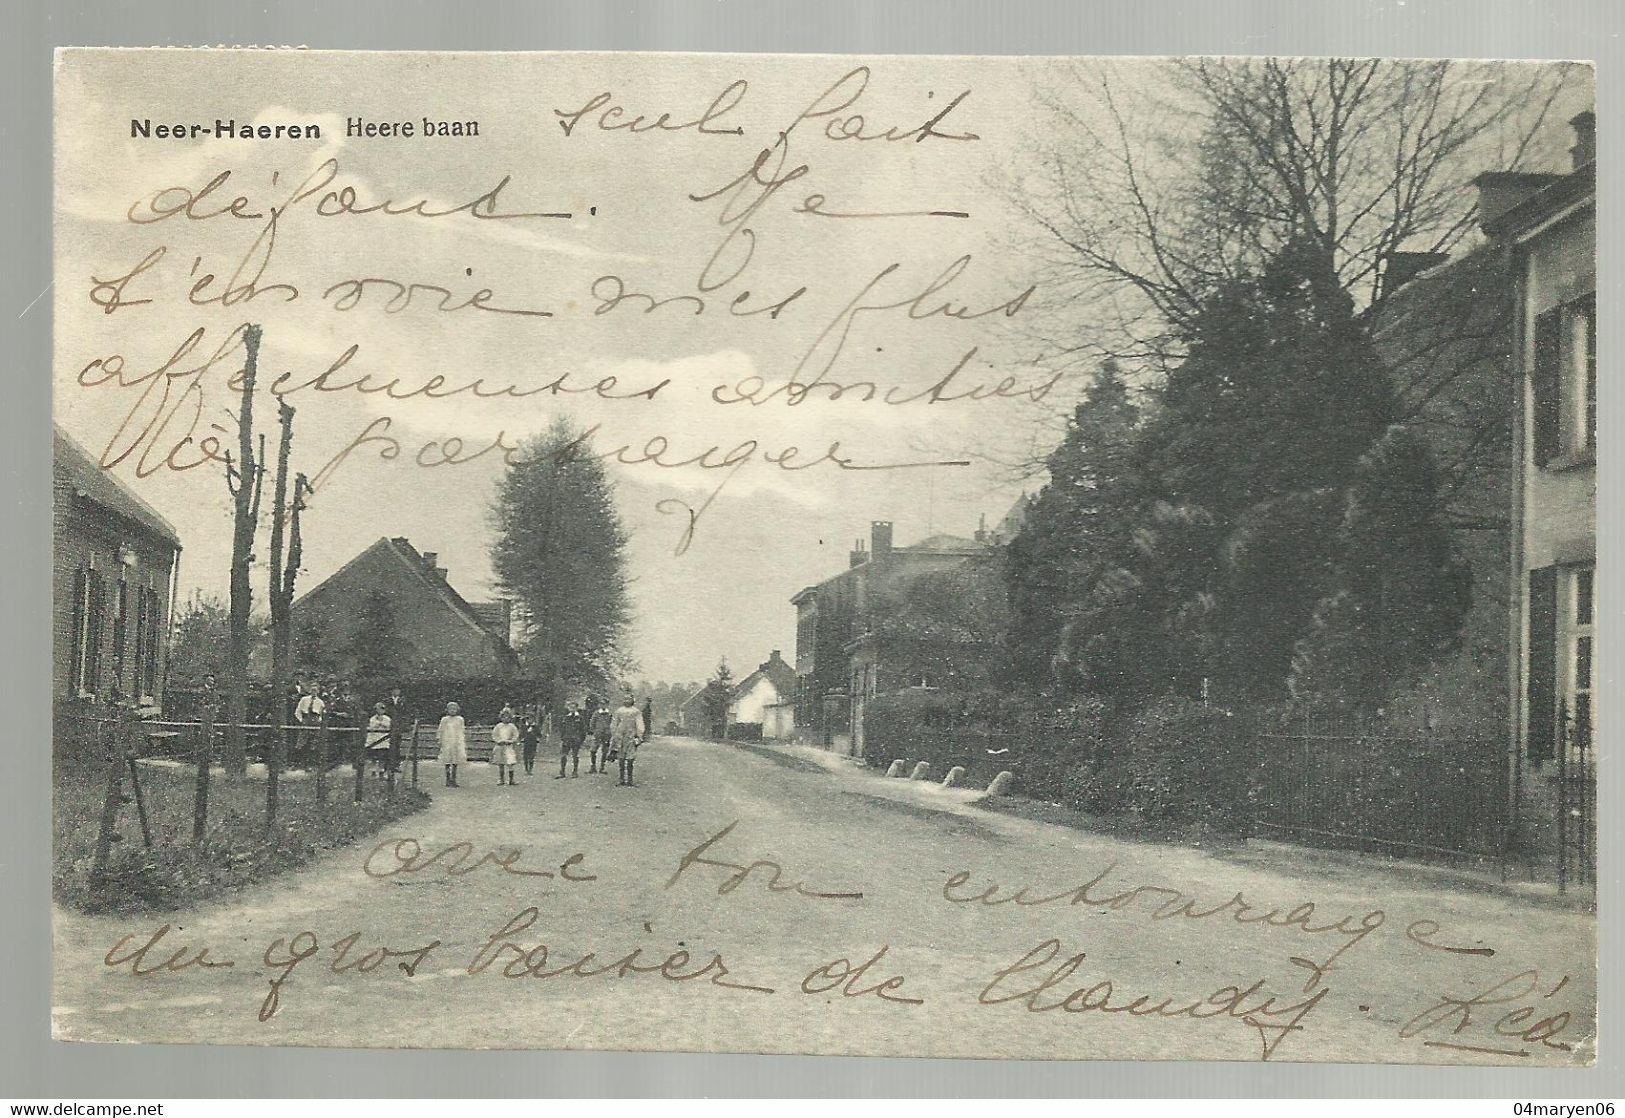 Neer-Haeren Heere baan
seul fait
défaut. Je
t'envoie mes plus
affectueuses amitiés
à partager
avec ton entourage
du gros baiser de Claudy. Léa
Delcampe.net
04maryen06